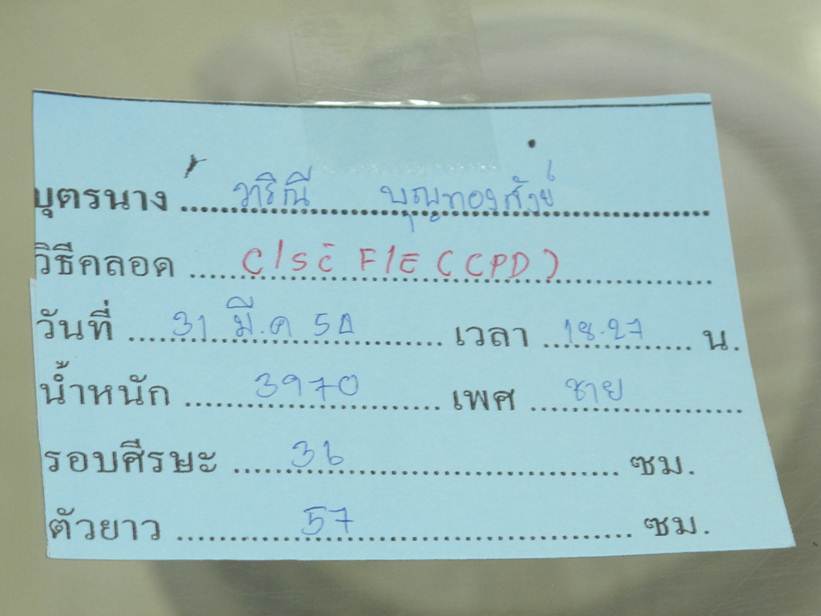 บุตรนาง วาริณี บุญทอง
วิธีคลอด C/S c̄ F/E (CPD)
วันที่ 31 มี.ค 54 เวลา 18.27 น.
น้ำหนัก 3970 เพศ ชาย
รอบศีรษะ 36 ซม.
ตัวยาว 57 ซม.